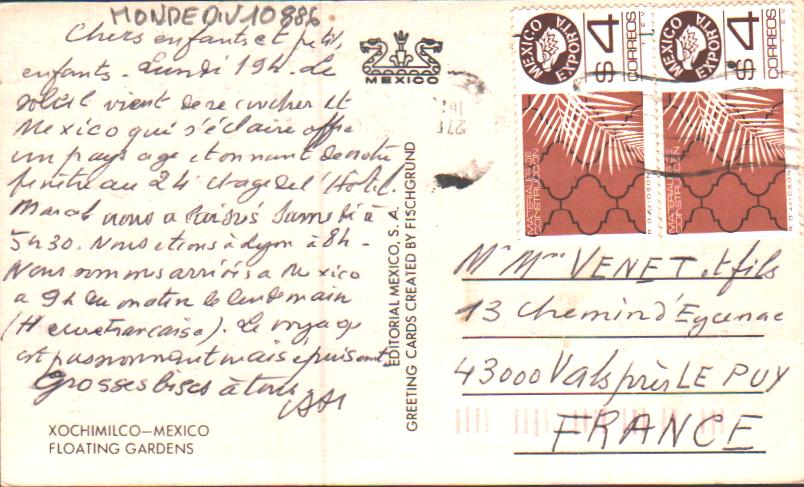 MONDEDIV10886
Chers enfants et petits
enfants. Lundi 19h. Le
soleil vient de se coucher et
Mexico qui s'éclaire offre
un paysage etonnant de notre
fenêtre au 24è etage de l'Hotel
Marcel nous a laissés samedi à
5h30. Nous etions à Lyon à 8h -
Nous sommes arrivés a Mexico
a 9h du matin le lendemain
(Heure francaise). Le voyage
est passionnant mais epuisant
Grosses bises à tous
XOCHIMILCO—MEXICO
FLOATING GARDENS
MEXICO
EDITORIAL MEXICO, S. A.
GREETING CARDS CREATED BY FISCHGRUND
MEXICO EXPORTA
$4
CORREOS
MATERIALES DE
CONSTRUCCION
R DAVIDSON
MEXICO EXPORTA
$4
CORREOS
MATERIALES DE
CONSTRUCCION
R DAVIDSON
Mr Mme VENET et fils
13 Chemin d'
43000 Vals près LE PUY
FRANCE